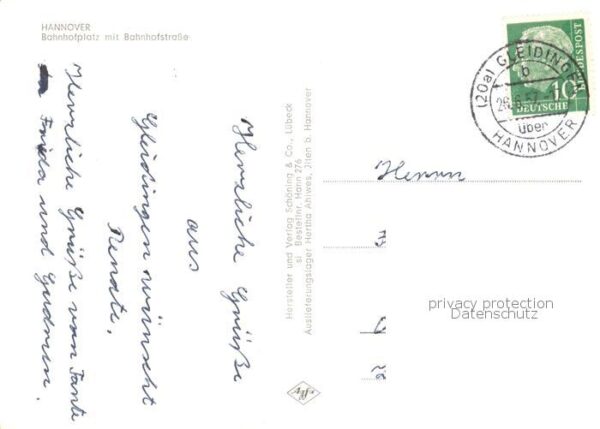 HANNOVER
Bahnhofplatz mit Bahnhofstraße
Herzliche Grüße
aus
Gleidingen wünscht
Renate.
Herzliche Grüße von Tante
Frida und Gudrun.
Hersteller und Verlag Schöning & Co., Lübeck
si Bestellnr. Hann 276
Auslieferungslager Hertha Ahlwes, Jlten b. Hannover
(20a) GLEIDINGEN
b
über
HANNOVER
10
DEUTSCHE
BUNDESPOST
Herrn
privacy protection
Datenschutz